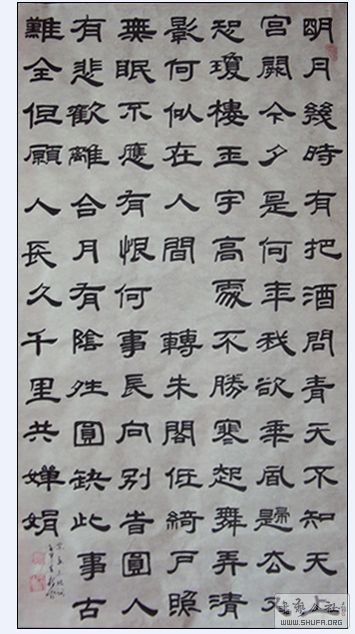 明月幾時有把酒問青天不知天
宮闕今夕是何年我欲乘風歸厺
恐瓊樓玉宇高處不勝寒起舞弄清
影何似在人間 轉朱閣低綺户照
無眠不應有恨何事長向別旹圓人
有悲歡離合月有陰夝圓缺此事古
難全但願人長久千里共嬋娟
WWW.SHUFA.ORG